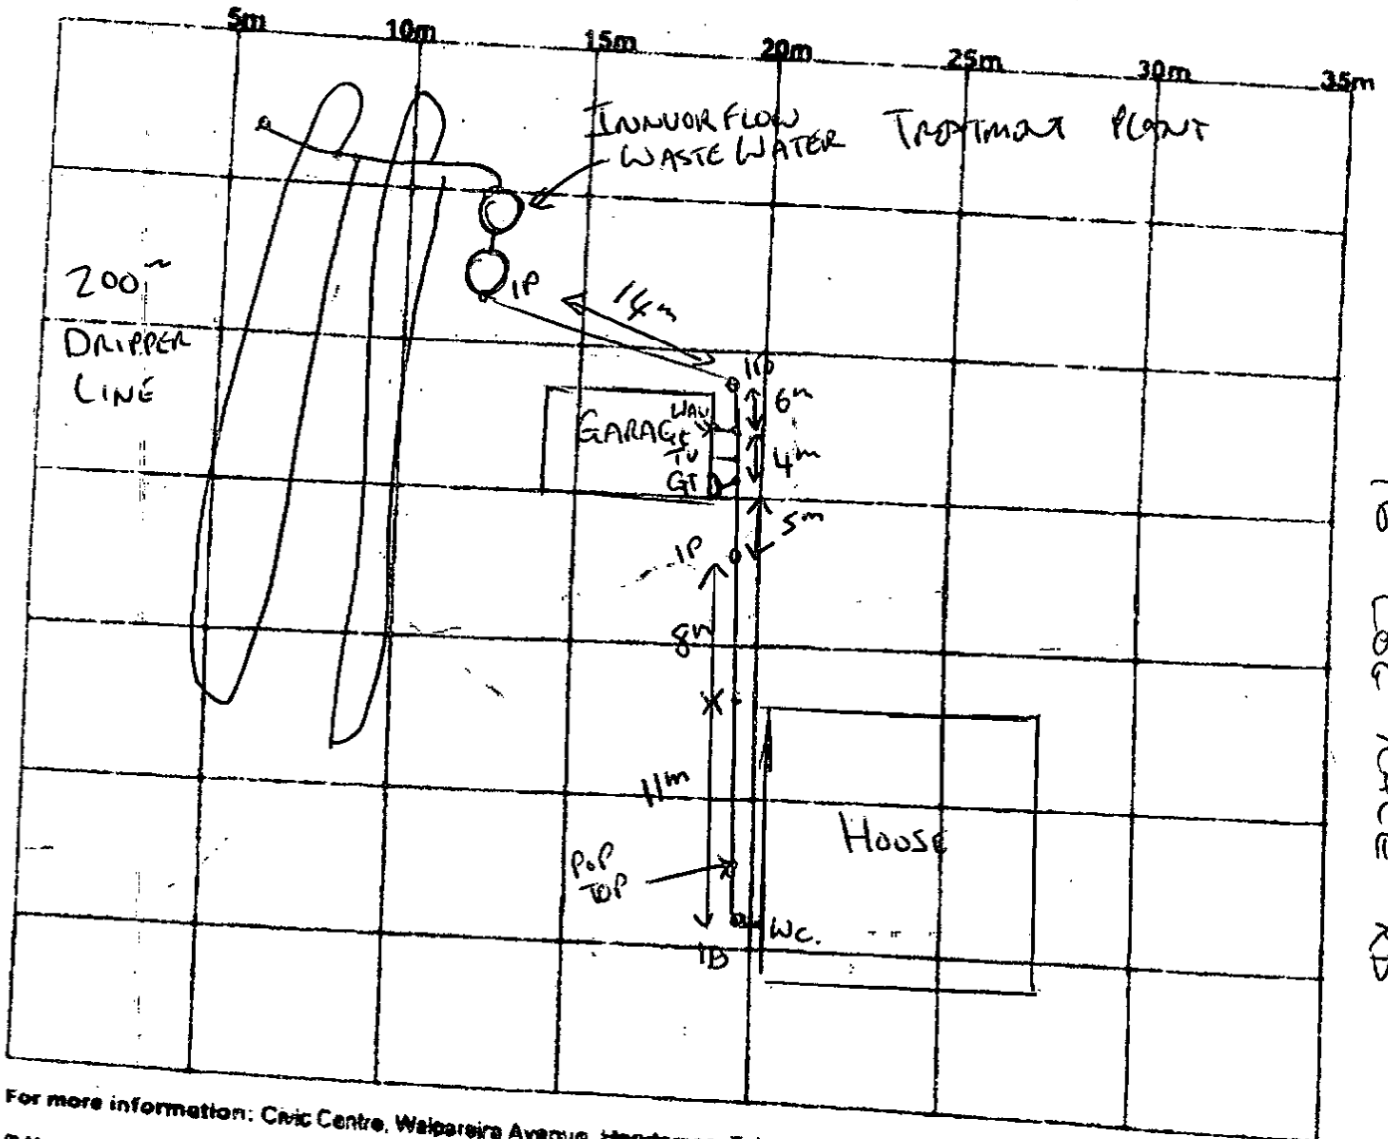 5m 10m 15m 20m 25m 30m 35m
INNVORFLOW
WASTE WATER TREATMENT PLANT
200m
DRIPPER
LINE
IP
14m
IP
6m
WAU
GARAGE
TU
4m
GT
5m
IP
8m
11m
HOOSE
POP
TOP
WC.
TB
RD
For more information: Civic Centre, Waipareira Avenue,